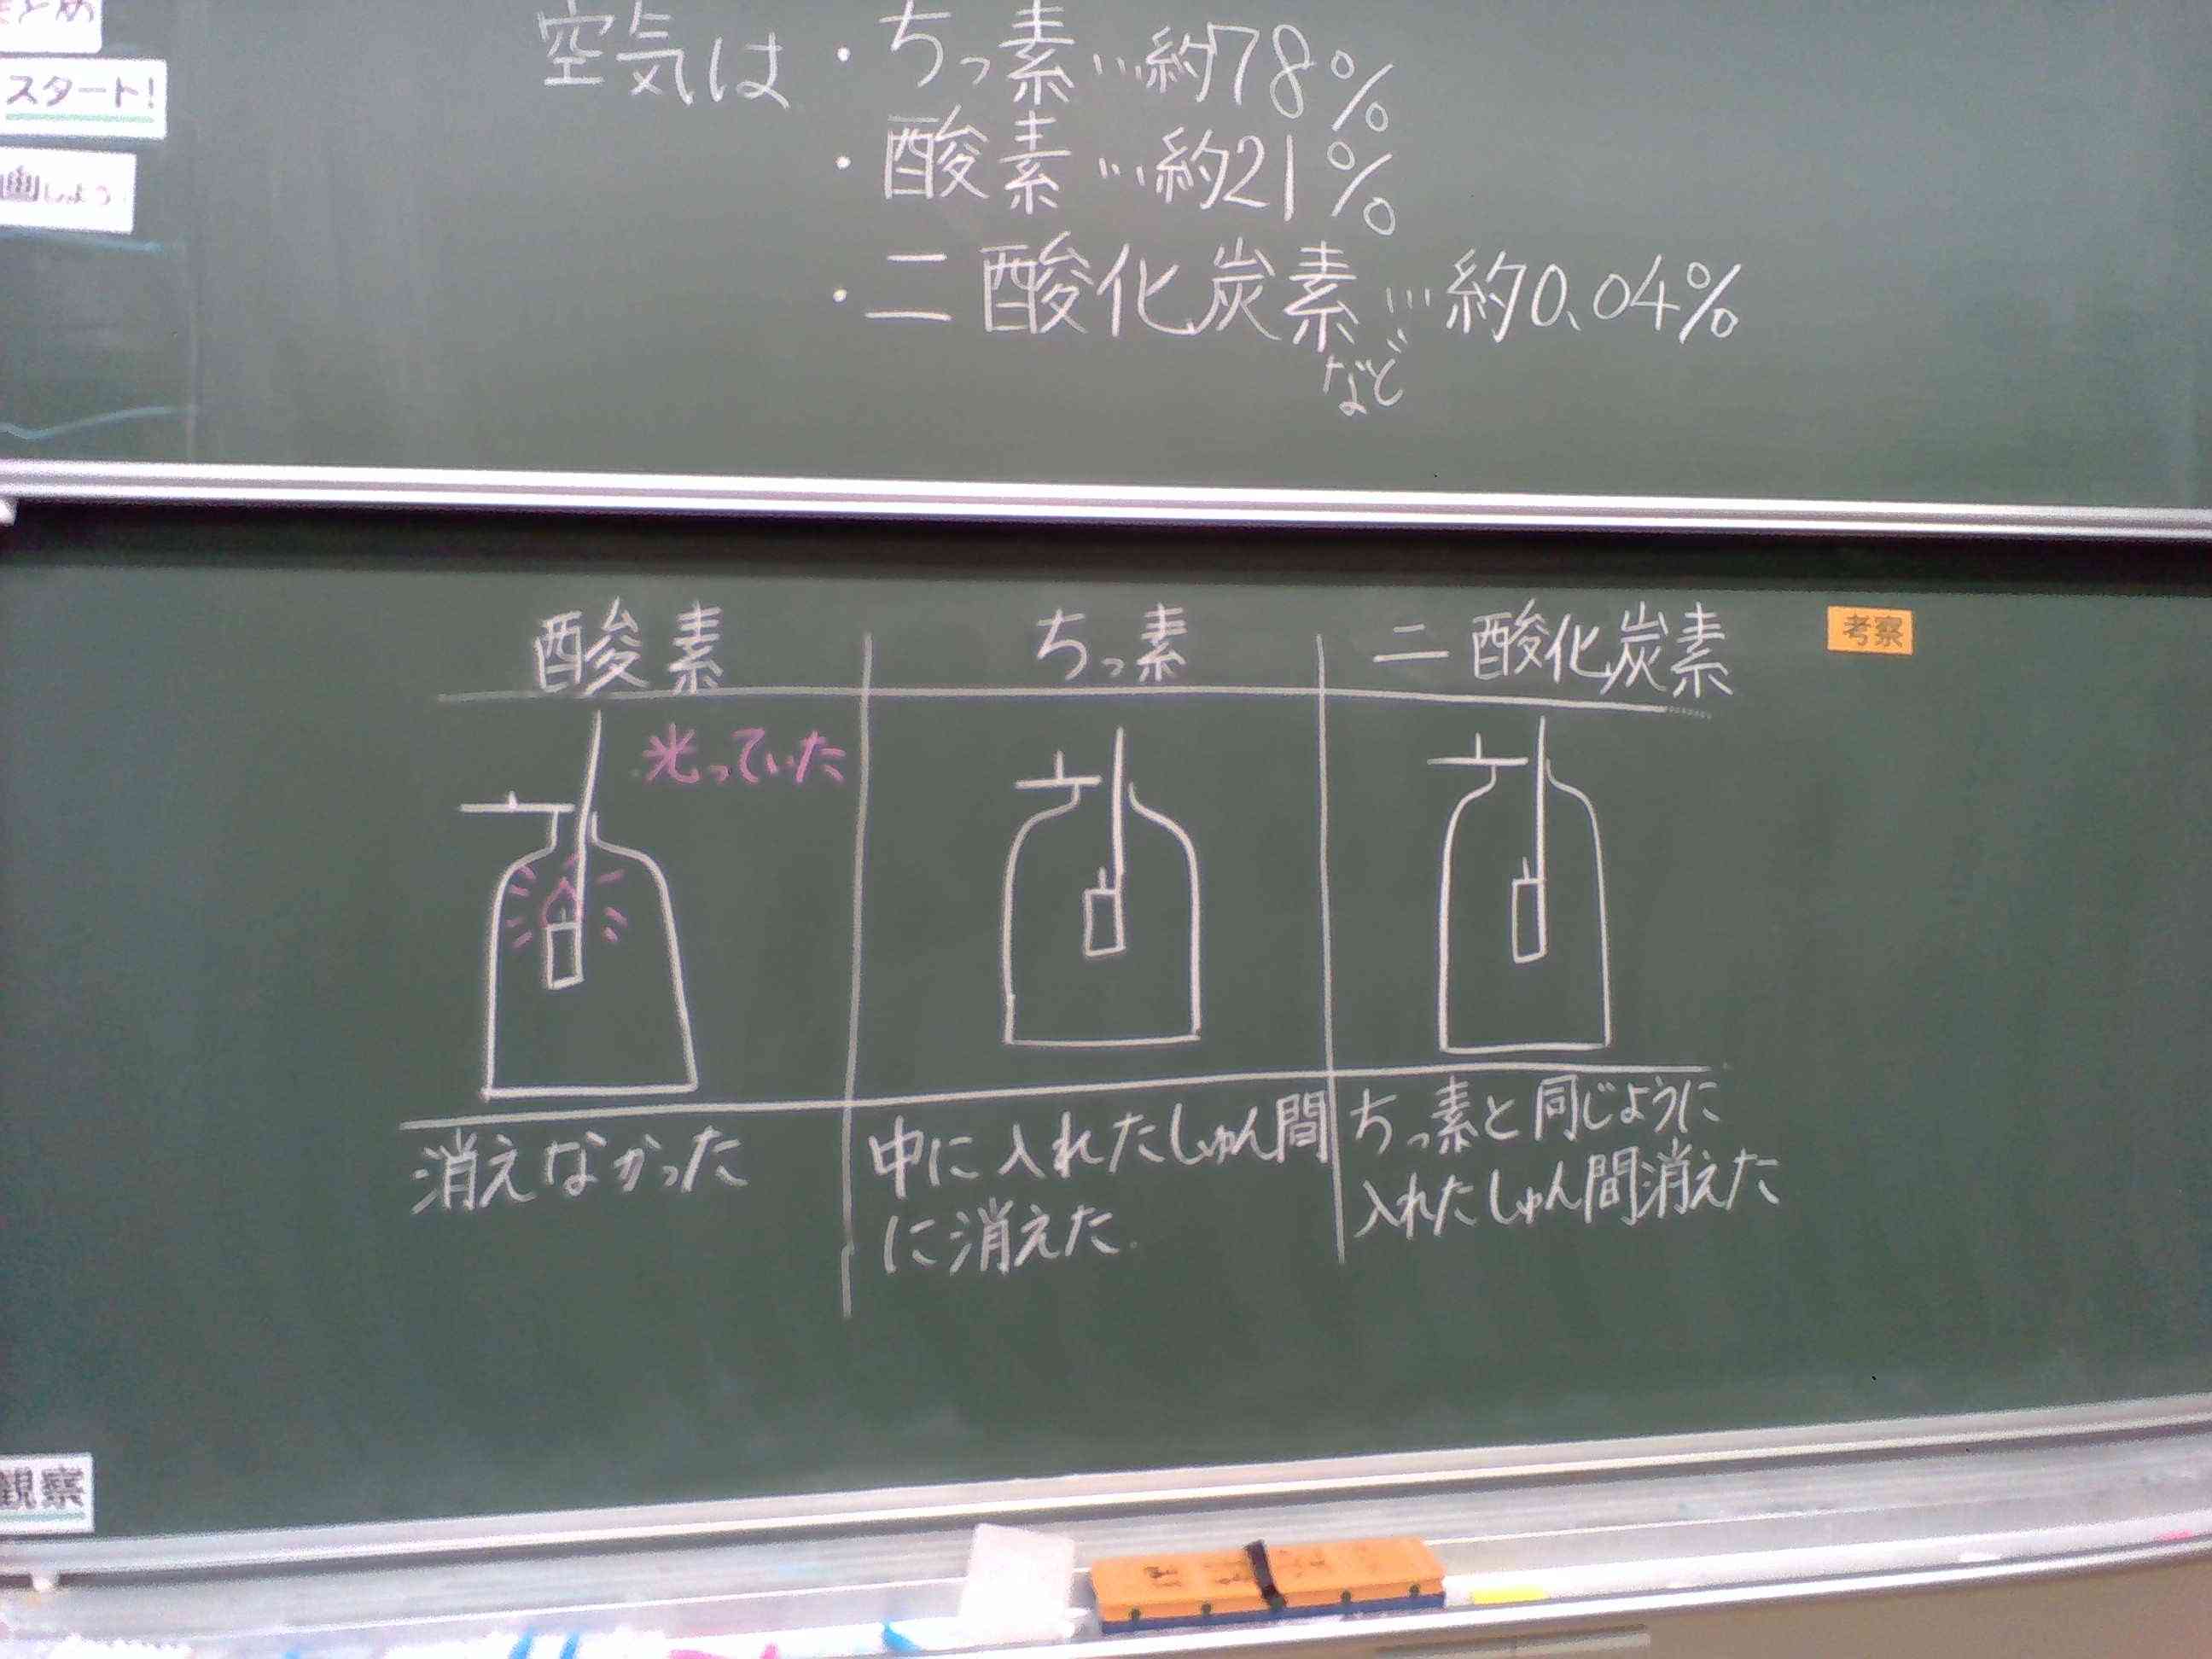 まとめ
スタート!
画しよう
空気は・ちっ素…約78%
・酸素…約21%
・二酸化炭素…約0.04%
など
酸素
ちっ素
二酸化炭素
考察
光っていた
消えなかった
中に入れたしゅん間
に消えた.
ちっ素と同じように
入れたしゅん間消えた
観察